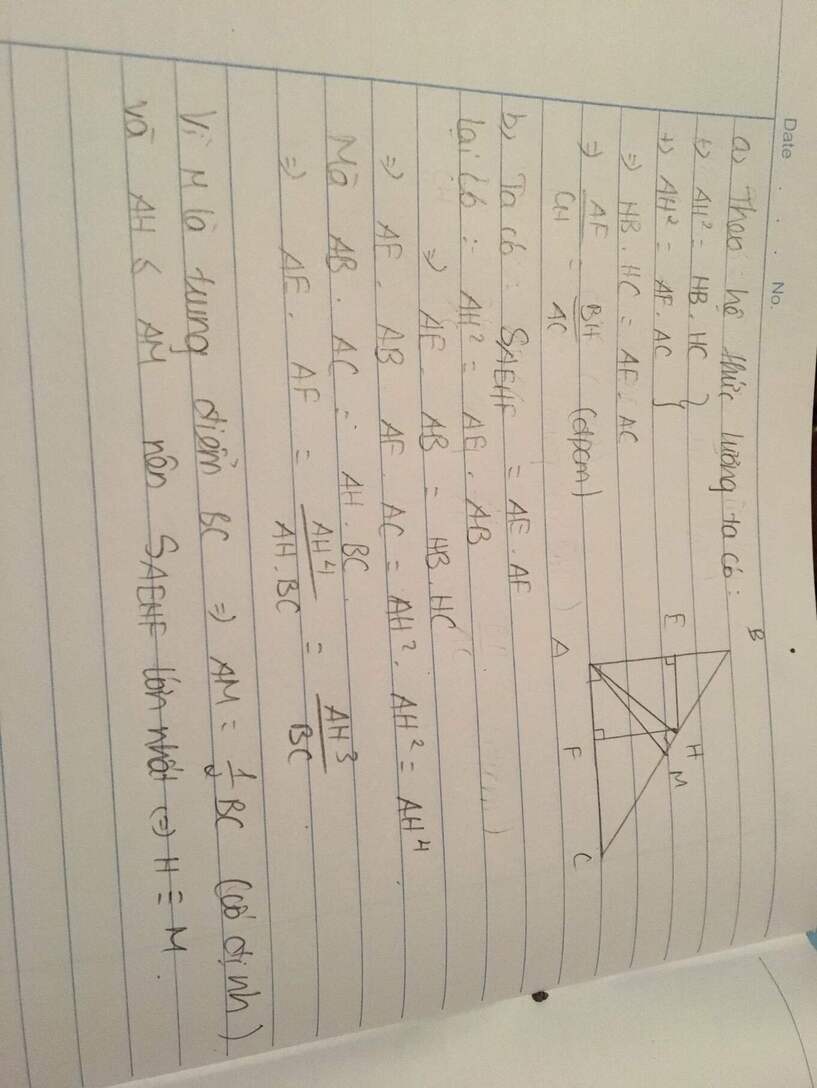 Date . . . No.
a) Theo hệ thức lượng ta có:
+) AH² = HB . HC }
+) AH² = AF . AC }
⇒ HB . HC = AF . AC
⇒ AF/CH = BH/AC (đpcm)
B
E
H
M
A
F
C
b) Ta có: SAEHF = AE . AF
lại có: AH² = AE . AB
⇒ AE . AB = HB . HC
⇒ AE . AB AF . AC = AH² . AH² = AH⁴
Mà AB . AC = AH . BC.
⇒ AE . AF = AH⁴/AH.BC = AH³/BC
Vì M là trung điểm BC ⇒ AM = 1/2 BC (cố định)
và AH ≤ AM nên SAEHF lớn nhất ⇔ H ≡ M.